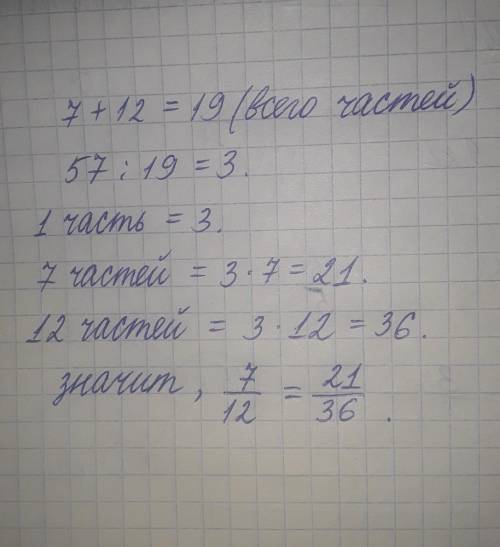 7 + 12 = 19 (всего частей)
57 : 19 = 3.
1 часть = 3.
7 частей = 3 · 7 = 21.
12 частей = 3 · 12 = 36.
значит, 7/12 = 21/36.